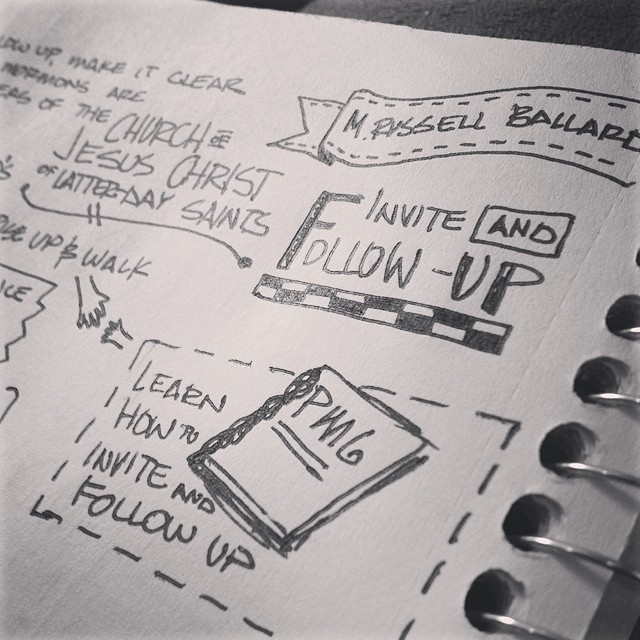 UP, MAKE IT CLEAR
MORMONS ARE
OF THE CHURCH OF
JESUS CHRIST
OF LATTER-DAY SAINTS
UP & WALK
M. RUSSELL BALLARD
INVITE AND
FOLLOW-UP
LEARN
HOW TO
INVITE AND
FOLLOW UP
PMG